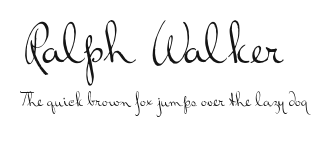 Ralph Walker
The quick brown fox jumps over the lazy dog